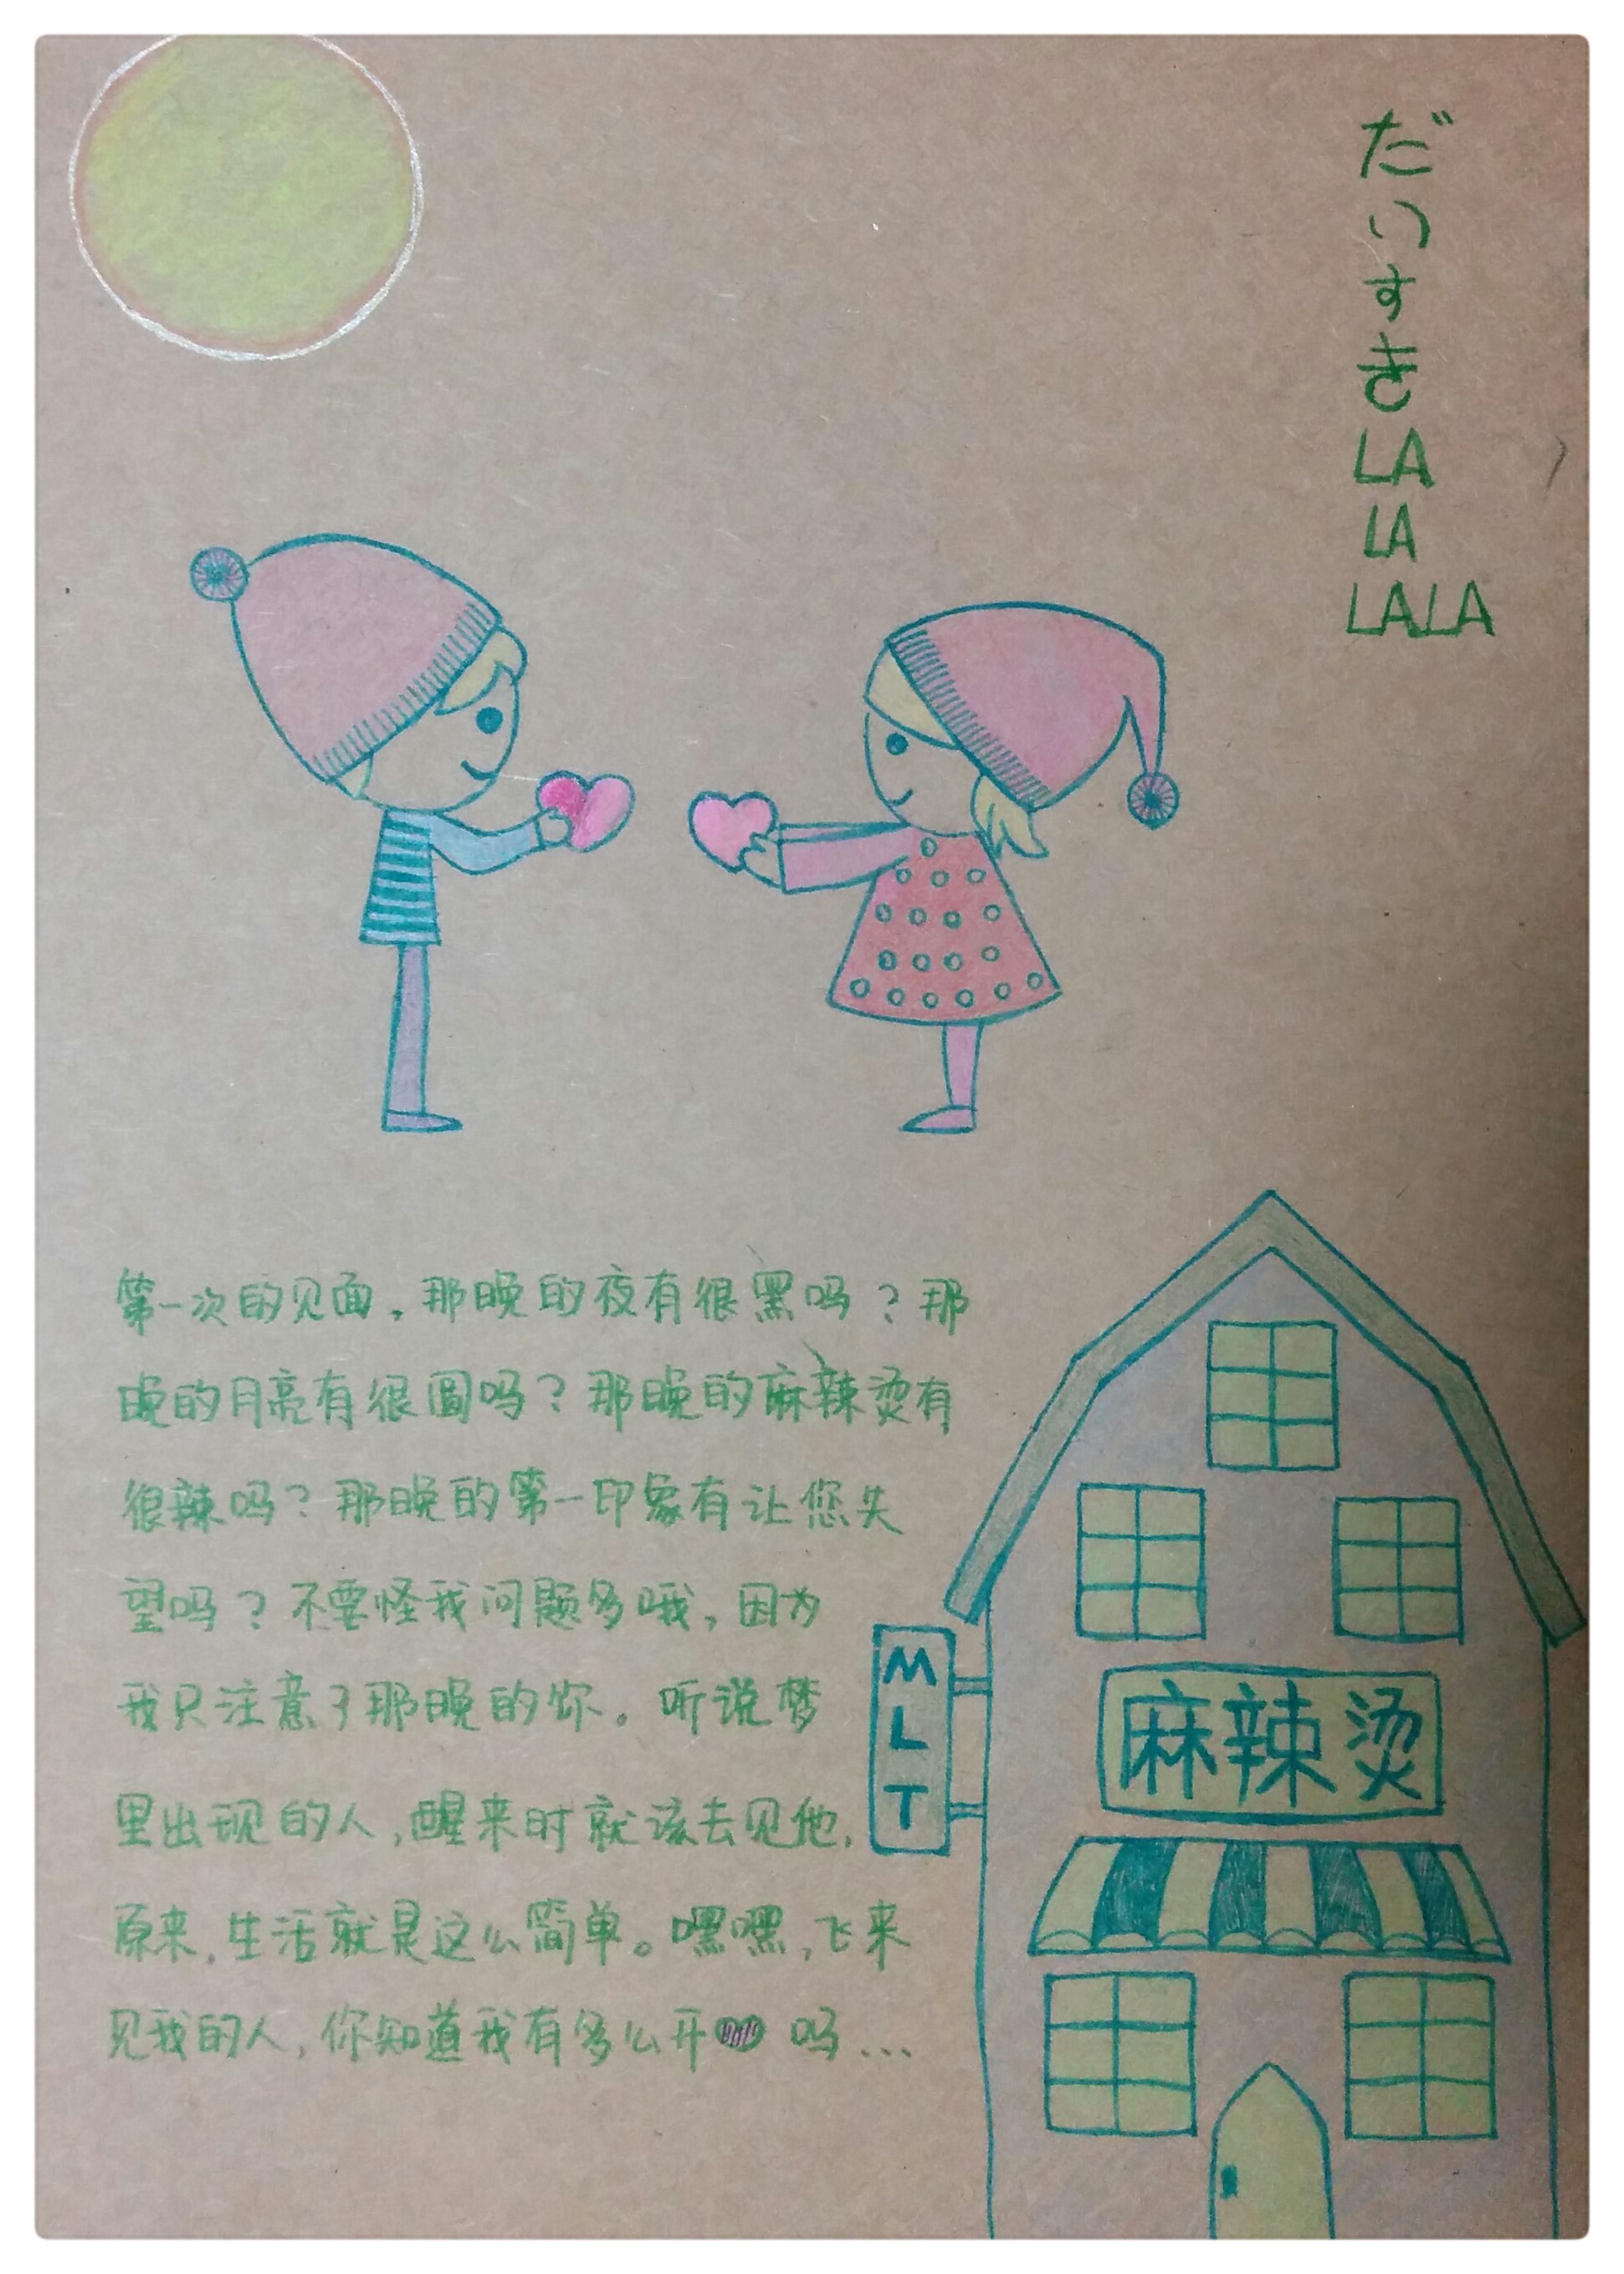 だ
い
す
き
LA
LA
LALA
第一次的见面。那晚的夜有很黑吗？那
晚的月亮有很圆吗？那晚的麻辣烫有
很辣吗？那晚的第一印象有让您失
望吗？不要怪我问题多哦，因为
我只注意了那晚的你。听说梦
里出现的人，醒来时就该去见他，
原来，生活就是这么简单。嘿嘿，飞来
见我的人，你知道我有多么开 吗...
M
L
T
麻辣烫